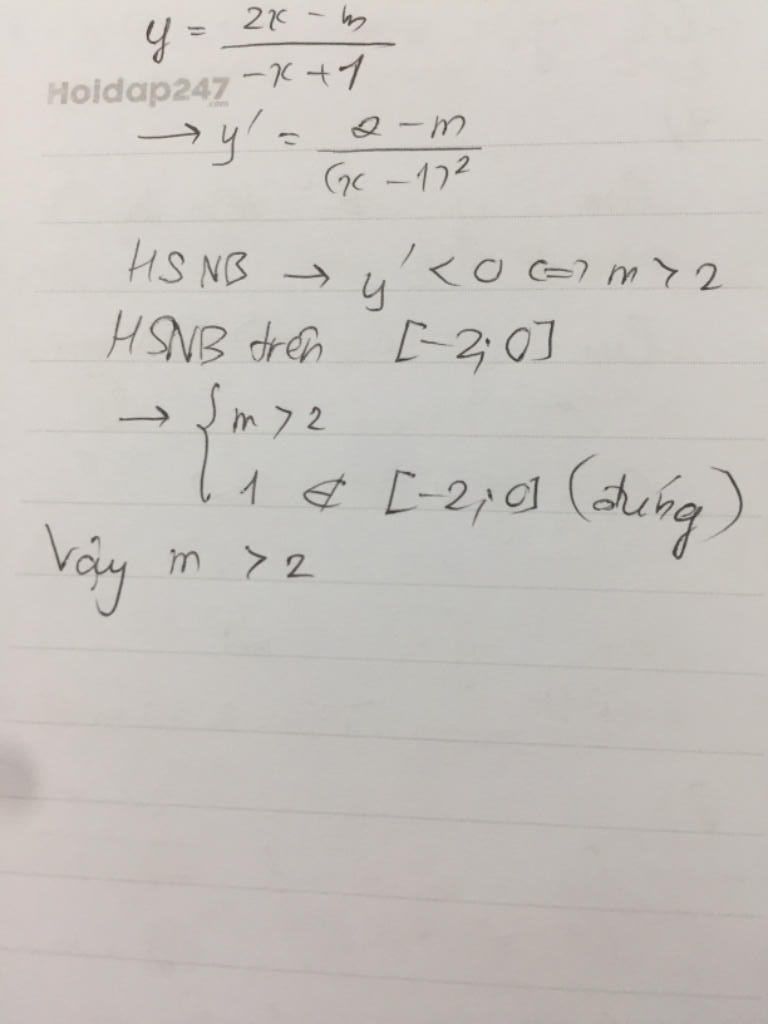 y = \frac{2x - m}{-x + 1}
Hoidap247
.com
→ y' = \frac{2 - m}{(x - 1)^2}
HSNB → y' < 0 <=> m > 2
HSNB trên [-2; 0]
→ { m > 2
1 ∉ [-2; 0] (đúng)
Vậy m > 2